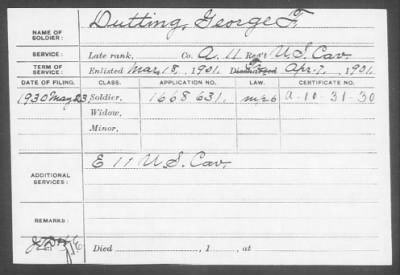 NAME OF SOLDIER: Dutting, George F.
SERVICE: Late rank, Co. A. 11 Reg't U.S. Cav.
TERM OF SERVICE: Enlisted Mar. 18, 1901. Discharged Apr. 1901.
DATE OF FILING. CLASS. APPLICATION NO. LAW. CERTIFICATE NO.
1930 May 23 Soldier, 1668631. a-10-31-30
Widow,
Minor,
ADDITIONAL SERVICES: E 11 U.S. Cav.
REMARKS:
Died , 1 , at